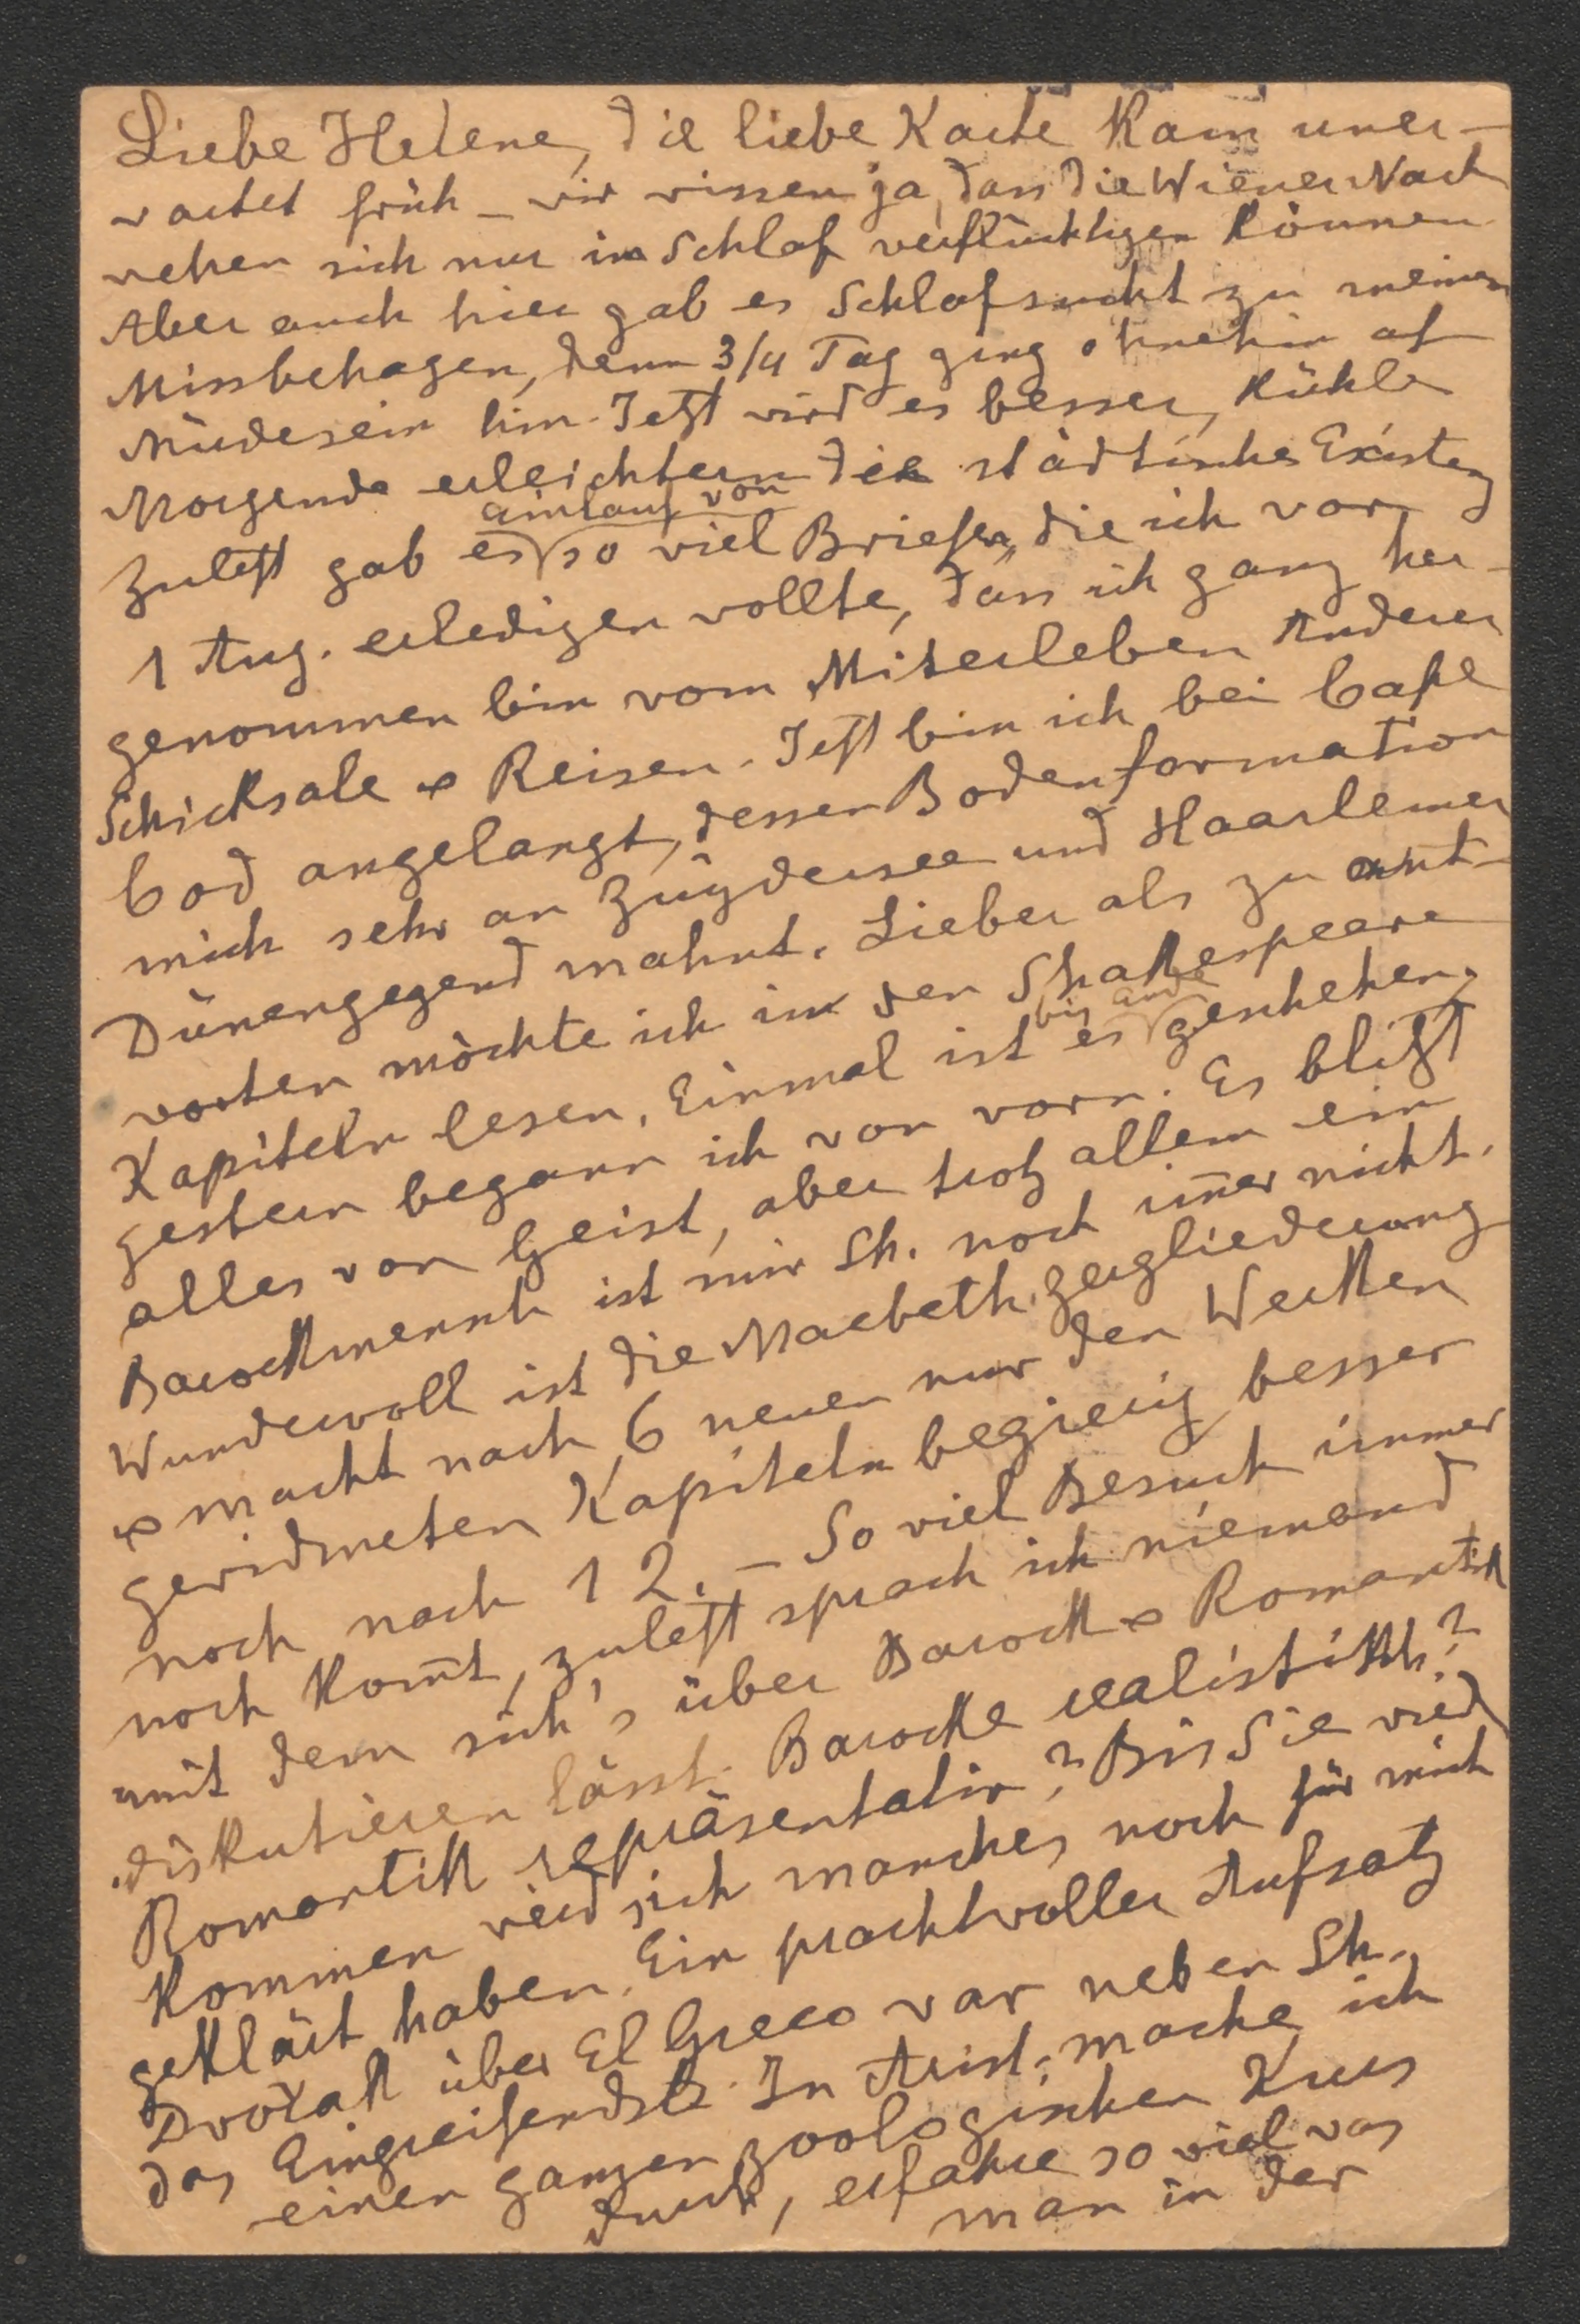 Liebe Helene, die liebe Karte kam uner-
wartet früh – wir wissen ja, dass die Wiener Nach
wehen sich nur im Schlaf verflüchtigen können
Aber auch hier gab es Schlafsucht zu meinem
Missbehagen, denn 3/4 Tag ging ohnehin auf
Müdesein hin. Jetzt wird es besser, kühle
Morgende erleichtern die städtische Existenz
einlauf von
Zuletzt gab es so viel Briefen, die ich vor
1 Aug. erledigen wollte, dass ich ganz her-
genommen bin vom Miterleben Anderer
Schicksale & Reisen. Jetzt bin ich bei Cape
Cod angelangt, dessen Bodenformation
mich sehr an Zuydersee und Haarlemer
Dünengegend mahnt. Lieber als zu ant-
worten möchte ich in den Shakespeare
bis Ende
Kapiteln lesen. Einmal ist es geschehen,
gestern begann ich von vorn. Es blitzt
alles von Geist, aber trotz allem ein
Barockmensch ist mir Sh. noch im̄er nicht.
Wundervoll ist die Macbeth. zergliederung
& macht nach 6 neuen nur den Werken
gewidmeten Kapiteln begierig, besser
noch nach 12. – So viel Besuch immer
noch kom̄t, zuletzt sprach ich niemand
mit dem sich's über Barock & Romantik
diskutieren lässt. Barocke realistikh?
Romantik repräsentativ? Bis Sie wied
kommen wird sich manches noch für mich
geklärt haben. Ein prachtvoller Aufsatz
Dvořak über El Greco war neben Sh.
das Eingreifendste. In Arist. mache ich
einen ganzen zoologischen Kurs
durch, erfahre so viel was
man in der